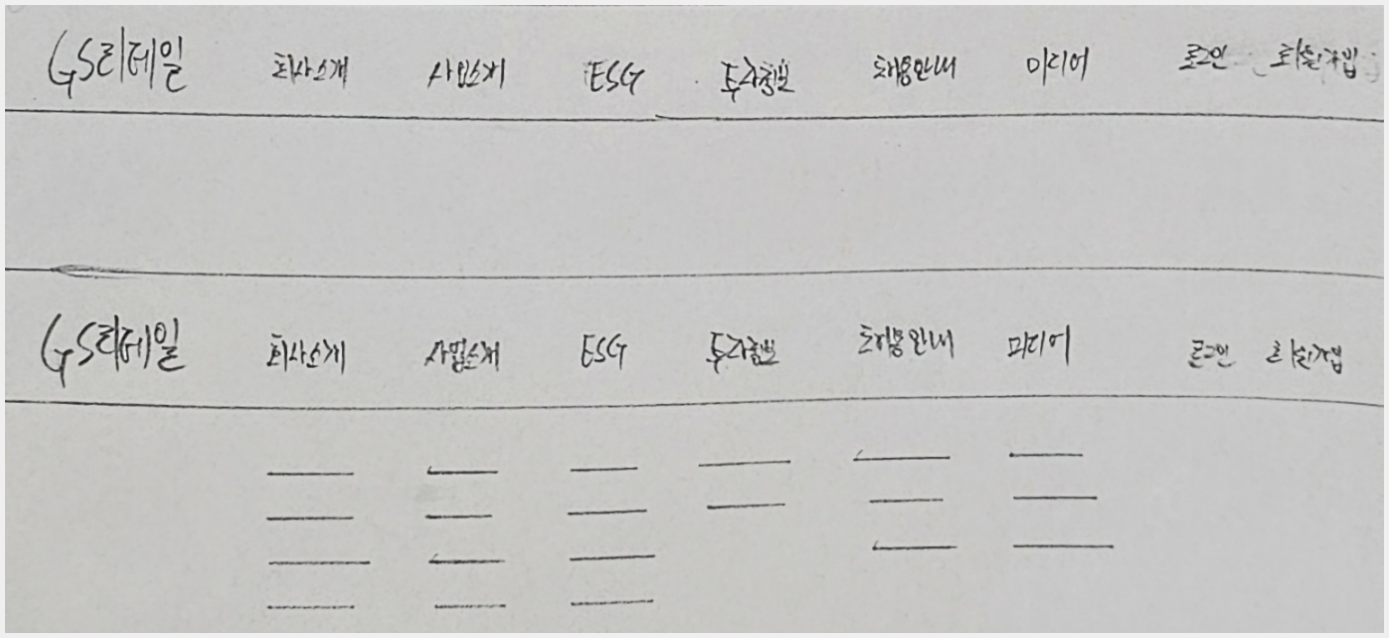 GS리테일 회사소개 사업소개 ESG 투자정보 채용안내 미디어 로그인 회원가입
GS리테일 회사소개 사업소개 ESG 투자정보 채용안내 미디어 로그인 회원가입